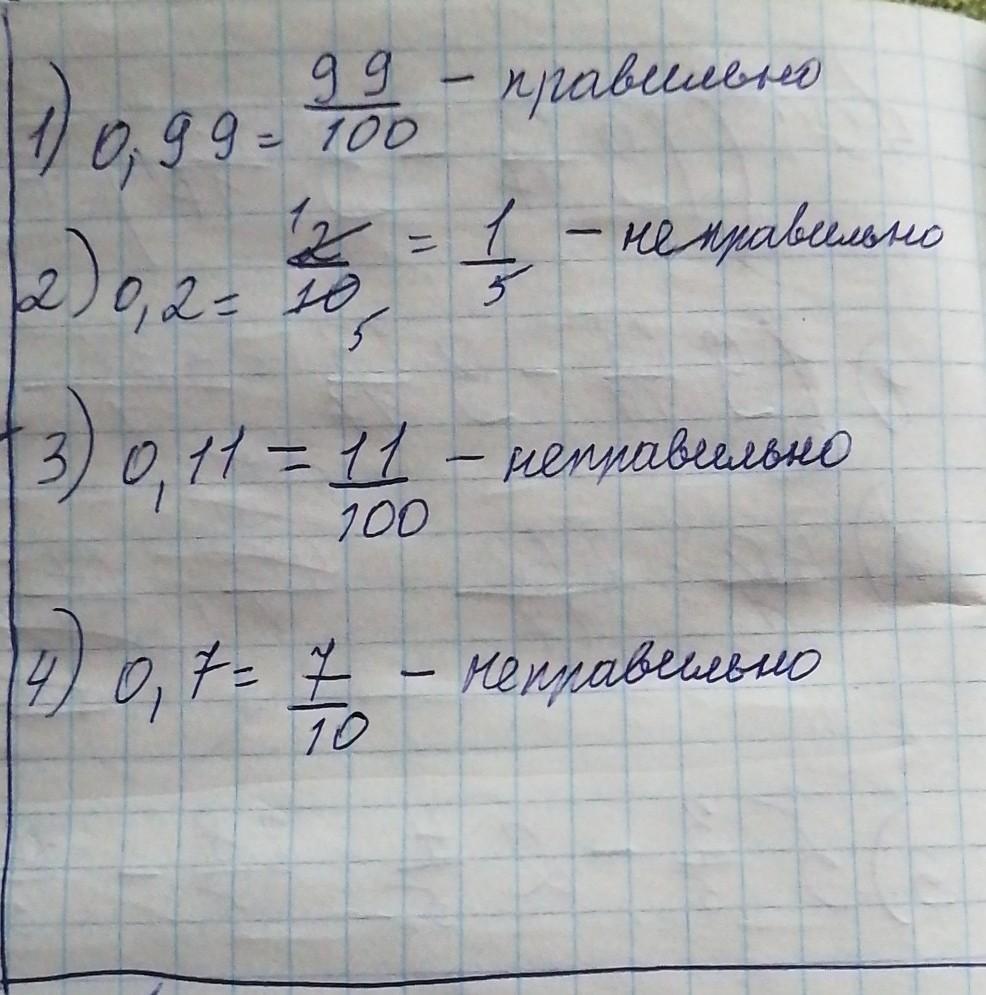 1) 0,99 = 99/100 - правильно
2) 0,2 = 2/10 = 1/5 - неправильно
1 5
3) 0,11 = 11/100 - неправильно
4) 0,7 = 7/10 - неправильно